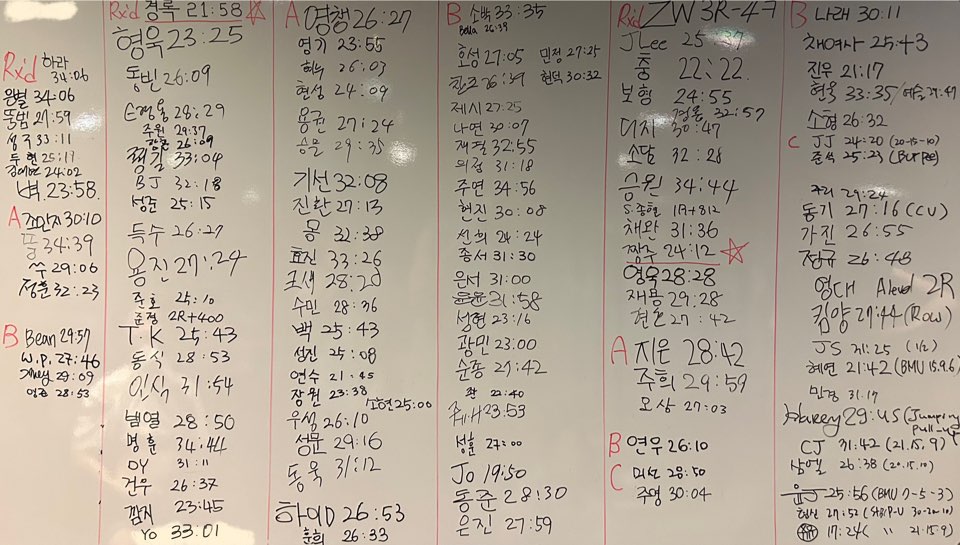 Rx'd 하라
34:06
은별 34:06
똔범 27:59
성구 33:11
두현 25:17
24:02
벽 23:58
A 조만지 30:10
풀 34:39
쑤 29:06
정훈 32:23
B Bean 29:57
W.P. 27:46
29:09
영관 28:53
Rx'd 경록 21:58
형욱 23:25
동빈 26:09
손경올 28:29
주원 29:37
26:09
찍길 33:04
BJ 32:18
성준 25:15
득수 26:27
용진 27:24
준호 25:10
준정 2R+400
T.K 25:43
동식 28:53
인식 31:54
범영 28:50
명훈 34:44
DY 31:11
건우 26:37
깜지 23:45
Yo 33:01
A 영갱 26:27
영기 23:55
혜수 26:03
현성 24:09
용권 27:24
승을 29:35
기선 32:08
진환 27:13
몽 32:38
효진 33:26
조새 28:20
수민 28:36
백 25:43
성진 25:08
연수 21:45
장원 23:38
소현 25:00
우섭 26:10
성문 29:16
동욱 31:12
하이D 26:53
훈희 26:33
B 소박 33:35
Bella 26:39
효성 27:05 민정 27:25
창고 26:39 현덕 30:32
제시 27:25
나연 30:07
재걸 32:55
의정 31:18
주연 34:56
현진 30:08
선희 24:24
종서 31:30
은서 31:00
31:58
성현 23:16
광민 23:00
순종 27:42
환 22:40
23:53
성훈 27:00
Jo 19:50
동준 28:30
은진 27:59
Rx'd ZW 3R-47
J Lee 25:37
줌 22:22
보험 24:55
경용 32:57
더지 30:47
소담 32:28
승원 34:44
S.종혁 1R+812
채완 31:36
짱주 24:12
영욱 28:28
재용 29:28
견온 27:42
A 지은 28:42
주희 29:59
모상 27:03
B 연우 26:10
C 미선 28:50
주영 30:04
B 나래 30:11
채여사 25:43
진우 21:17
현욱 33:35 예슬 29:47
소경 26:32
C JJ 24:20 (20-15-10)
준석 25:23 (BURPEE)
29:24
동기 27:16 (CCV)
가진 26:55
정규 26:48
영대 A level 2R
김양 27:44 (Row)
JS 31:25 (1/2)
혜연 21:42 (BMU 15.9.6)
민경 31:17
Harry 29:45 (Jumping pull-up)
CJ 31:42 (21.15.9)
삼엘 26:38 (20.15.10)
윤J 25:56 (BMU 7-5-3)
27:52 (30-20-10)
17:24 ( " 21.15.9)